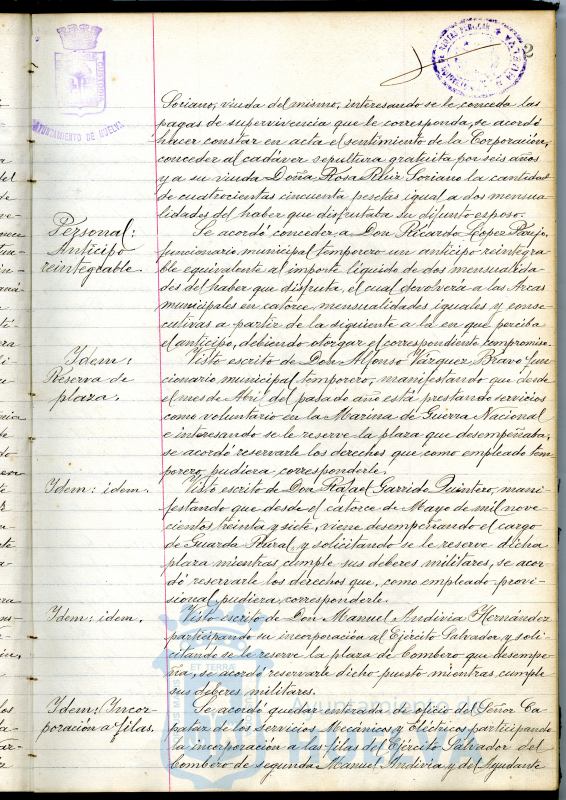 2
AYUNTAMIENTO DE HUELVA
Soriano, viuda del mismo, interesando se le conceda las
pagas de supervivencia que le corresponda, se acordó
hacer constar en acta el sentimiento de la Corporación,
conceder al cadáver sepultura gratuita por seis años
y a su viuda Doña Rosa Ruiz Soriano la cantidad
de cuatrocientas cincuenta pesetas igual a dos mensua-
lidades del haber que disfrutaba su difunto esposo.
Personal:
Anticipo
reintegrable.
Se acordó conceder a Don Ricardo López Araujo,
funcionario municipal temporero un anticipo reintegra-
ble equivalente al importe líquido de dos mensualida-
des del haber que disfruta, el cual devolverá a las Arcas
municipales en catorce mensualidades iguales y conse-
cutivas a partir de la siguiente a la en que perciba
el anticipo, debiendo otorgar el correspondiente compromiso.
Idem:
Reserva de
plaza.
Visto escrito de Don Alfonso Vázquez Bravo fun-
cionario municipal temporero, manifestando que desde
el mes de Abril del pasado año está prestando servicios
como voluntario en la Marina de Guerra Nacional
e interesando se le reserve la plaza que desempeñaba,
se acordó reservarle los derechos que como empleado tem-
porero pudiera corresponderle.
Idem: idem.
Visto escrito de Don Rafael Garrido Quintero, mani-
festando que desde el catorce de Mayo de mil nove-
cientos treinta y siete, viene desempeñando el cargo
de Guarda Rural, y solicitando se le reserve dicha
plaza mientras cumple sus deberes militares, se acor-
dó reservarle los derechos que, como empleado provi-
sional, pudiera corresponderle.
Idem: idem.
Visto escrito de Don Manuel Andivia Hernández
participando su incorporación al Ejército Salvador y soli-
citando se le reserve la plaza de Bombero que desempe-
ña, se acordó reservarle dicho puesto mientras cumple
sus deberes militares.
Idem: Incor-
poración a filas.
Se acordó quedar enterada de oficio del Señor Ca-
pataz de los servicios Mecánicos y Eléctricos participando
la incorporación a las filas del Ejército Salvador del
Bombero de segunda Manuel Andivia y del Ayudante